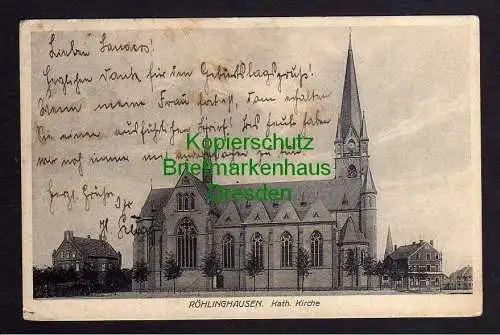 Lieber Sanders!
Herzlichen Dank für den Geburtstagsgruß!
Wenn meine Frau dann erhalten
Sie einen ausführlichen Brief! bis heut haben
wir noch immer mit
Herzl. Grüße
Ihr
Kopierschutz
Briefmarkenhaus
Dresden
RÖHLINGHAUSEN. Kath. Kirche